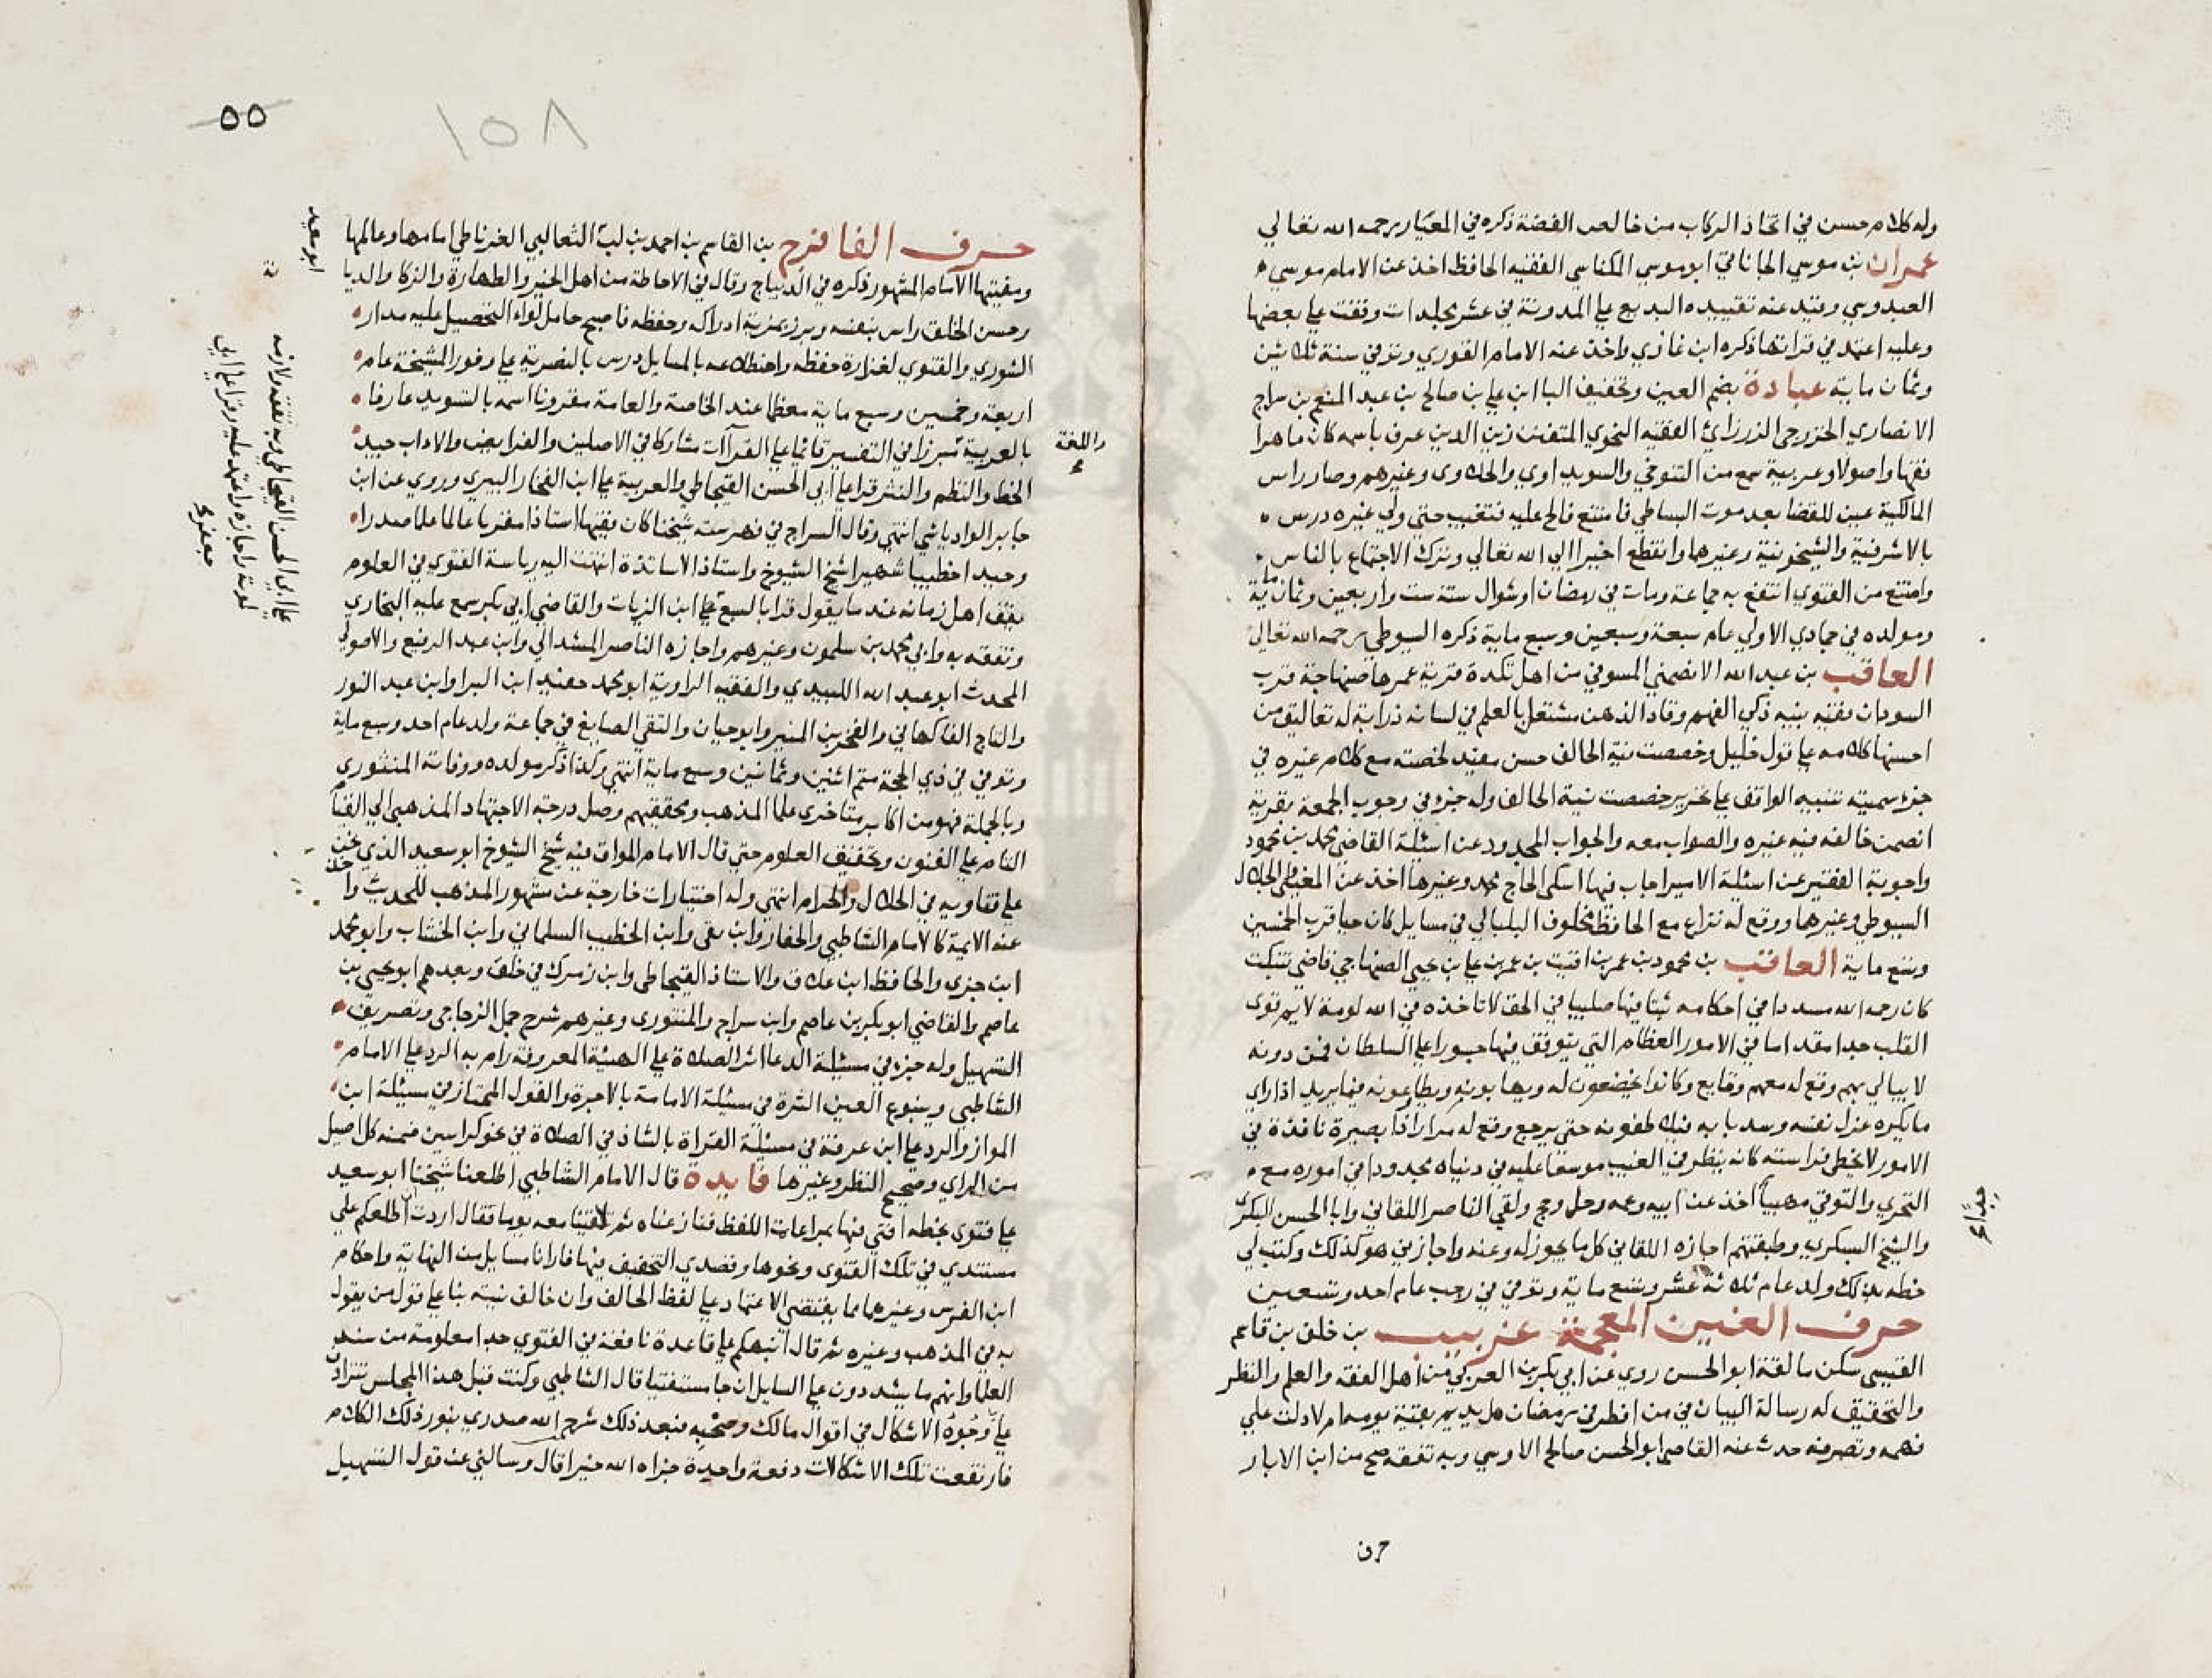 وله كلام حسن في اتخاذ الركاب من خالص الفضة ذكره في المعيار رحمه الله تعالي
عمران بن موسي الجاناتي ابو موسي المكناسي الفقيه الحافظ اخذ عن الامام موسي
العبدوسي وقيد عنه تقييده البديع علي المدونة في عشر مجلدات وقفت علي بعضها
وعليه اعتمد في قراتها ذكره ابن غازي واخذ عنه الامام القوري وتوفي سنة ثلاثين
وثمان ماية عبادة بضم العين وتخفيف البا ابن علي بن صالح بن عبد المنعم بن سراج
الانصاري الخزرجي الزرزائ الفقيه النحوي المتفنن زين الدين عرف باسمه كان ماهرا
فقها واصولا وعربية سمع من التنوخي والسويداوي والحلاوي وغيرهم وصار راس
المالكية عين للقضا بعد موت البساطي فامتنع فالح عليه فتغيب حتي ولي غيره درس
بالاشرفية والشيخونية وغيرهما وانقطع اخيرا الي الله تعالي وترك الاجتماع بالناس
وامتنع من الفتوي انتفع به جماعة ومات في رمضان او شوال سنة ست واربعين وثمان ماية
ومولده في جمادي الاولي عام سبعة وسبعين وسبع ماية ذكره السيوطي رحمه الله تعالي
العاقب بن عبد الله الانصمني المسوفي من اهل تكدة قرية عمرها صنهاجة قرب
السودان فقيه نبيه ذكي الفهم وقاد الذهن مشتغل بالعلم في لسانه ذرابة له تعاليق من
احسنها كلامه علي قول خليل وخصصت نية الحالف حسن مفيد لخصته مع كلام غيره في
جزء سميته تنبيه الواقف علي تحرير خصصت نية الحالف وله جزء في وجوب الجمعة بقرية
انصمن خالفه فيه غيره والصواب معه والجواب المجدود عن اسئلة القاضي محمد بن محمود
واجوبة الفقير عن اسئلة الامير اجاب فيها اسكي الحاج محمد وغيرها اخذ عن المغيلي والجلال
السيوطي وغيرهما ووقع له نزاع مع الحافظ مخلوف البلبالي في مسايل كان حيا قرب الخمسين
وتسع ماية العاقب بن محمود بن عمر بن اقيت بن عمر بن علي بن يحيي الصنهاجي قاضي تنبكت
كان رحمه الله مسددا في احكامه ثبتا فيها صليبا في الحق لا تاخذه في الله لومة لايم قوي
القلب جدا مقداما في الامور العظام التي يتوقف فيها جسورا علي السلطان فمن دونه
لا يبالي بهم وقع له معهم وقايع وكانوا يخضعون له ويهابونه ويطاوعونه فيما يريد اذا راي
ما يكرهه عزل نفسه وسد بابه فيلاطفونه حتي يرجع وقع له مرارا ذا بصيرة نافذة في
الامور لا تخطي فراسته كانه ينظر في الغيب موسعا عليه في دنياه مجدودا في اموره مع
التحري والتوقي مهيبا اخذ عن ابيه وعمه ورحل وحج ولقي الناصر اللقاني وابا الحسن البكري
جدا
والشيخ البسكري وطبقتهم اجازه اللقاني كل ما يجوز له وعنه واجازني هو كذلك وكتب لي
خطه بذلك ولد عام ثلاثة عشر وتسع ماية وتوفي في رجب عام احد وتسعين
حرف الغين المعجمة غريب بن خلف بن قاسم
القيسي سكن مالقة ابو الحسن روي عن ابي بكر بن العربي من اهل الفقه والعلم والنظر
والتحقيق له رسالة البيان في من افطر في رمضان هل يديم بقية يومه ام لا دلت علي
فهمه وتصرفه حدث عنه القاضي ابو الحسن صالح الاوسي وبه تفقه صح من ابن الابار
حرف
٥٥
١٥٨
حرف الفا فرج بن القاسم بن احمد بن لب الثعالبي الغرناطي امامها وعالمها
ابو سعيد
ومفتيها الامام المشهور ذكره في الديباج وقال في الاحاطة من اهل الخير والطهارة والذكا والديا
نة
وحسن الخلق راس بنفسه وبرز بمزية ادراكه وحفظه فاصبح حامل لواء التحصيل عليه مدار
الشوري والفتوي لغزارة حفظه واضطلاعه بالمسايل درس بالنصرية علي وفور المشيخة عام
اربعة وخمسين وسبع ماية معظما عند الخاصة والعامة مقرونا اسمه بالتسويد عارفا
بالعربية مبرزا في التفسير قائما علي القراآت مشاركا في الاصلين والفرايض والاداب جيد
واللغة
الخط والنظم والنثر قرا علي ابي الحسن القيجاطي والعربية علي ابن الفخار البيري وروي عن ابن
جابر الوادياشي انتهي وقال السراج في فهرسته شيخنا كان فقيها استاذا مقريا عالما علما صدرا
وحيدا خطيبا شهيرا شيخ الشيوخ واستاذ الاساتذة انتهت اليه رياسة الفتوي في العلوم
يقف اهل زمانه عند ما يقول قرا بالسبع علي ابن الزيات والقاضي ابي بكر سمع عليه البخاري
وتفقه به وابي محمد بن سلمون وغيرهم واجازه الناصر المشدالي وابن عبد الرفيع والاصولي
المحدث ابو عبد الله اللبيدي والفقيه الراوية ابو محمد حفيد ابن البراء وابن عبد النور
والتاج الفاكهاني والفخر بن المنير وابو حيان والتقي الصايغ في جماعة ولد عام احد وسبع ماية
وتوفي في ذي الحجة متم اثنين وثمانين وسبع ماية انتهي وكذا ذكر مولده ووفاته المنتوري
وبالجملة فهو من اكابر متاخري علما المذهب ومحققيهم وصل درجة الاجتهاد المذهبي الي القيام
التام علي الفنون وتحقيق العلوم حتي قال الامام المواق فيه شيخ الشيوخ ابو سعيد الذي نحن
علي فتاويه في الحلال والحرام انتهي وله اختيارات خارجة عن مشهور المذهب للحديث واخذ
عنه الايمة كالامام الشاطبي والحفار وابن بقي وابن الخطيب السلماني وابن الخشاب وابو محمد
ابن جزي والحافظ ابن علاق والاستاذ القيجاطي وابن زمرك في خلق وبعدهم ابو يحيي بن
عاصم والقاضي ابو بكر بن عاصم وابن سراج والمنتوري وغيرهم شرح جمل الزجاجي وتصريف
التسهيل وله جزء في مسئلة الدعا اثر الصلاة علي الهيئة المعروفة رام به الرد علي الامام
الشاطبي وينبوع العين الثرة في مسئلة الامامة بالاجرة والقول الممتاز في مسئلة ابن
المواز والرد علي ابن عرفة في مسئلة القراة بالشاذ في الصلاة في نحو كراسين ضمنه كل اصيل
من الراي وصحيح النظر وغيرها فايدة قال الامام الشاطبي اطلعنا شيخنا ابو سعيد
علي فتوي بخطه افتي فيها بمراعات اللفظ فنازعناه ثم لقينا معه يوما فقال اردت ان اطلعكم علي
مستندي في تلك الفتوي ونحوها وقصدي التخفيف فيها فارانا مسايل من النهاية واحكام
ابن الفرس وغيرهما مما يقتضي الاعتماد علي لفظ الحالف وان خالف نيته بنا علي قول من يقول
به في المذهب وغيره ثم قال انبهكم علي قاعدة نافعة في الفتوي جدا معلومة من سنن
العلما وانهم ما يشددون علي السايل ان جا مستفتيا قال الشاطبي وكنت قبل هذا المجلس تتراد
علي وجوه الاشكال في اقوال مالك وصحبه فبعد ذلك شرح الله صدري بنور ذلك الكلام
فارتفعت تلك الاشكالات دفعة واحدة جزاه الله خيرا قال وسالني عن قول التسهيل
علي ابي الحسن القيجاطي وبه تفقه ولازمه